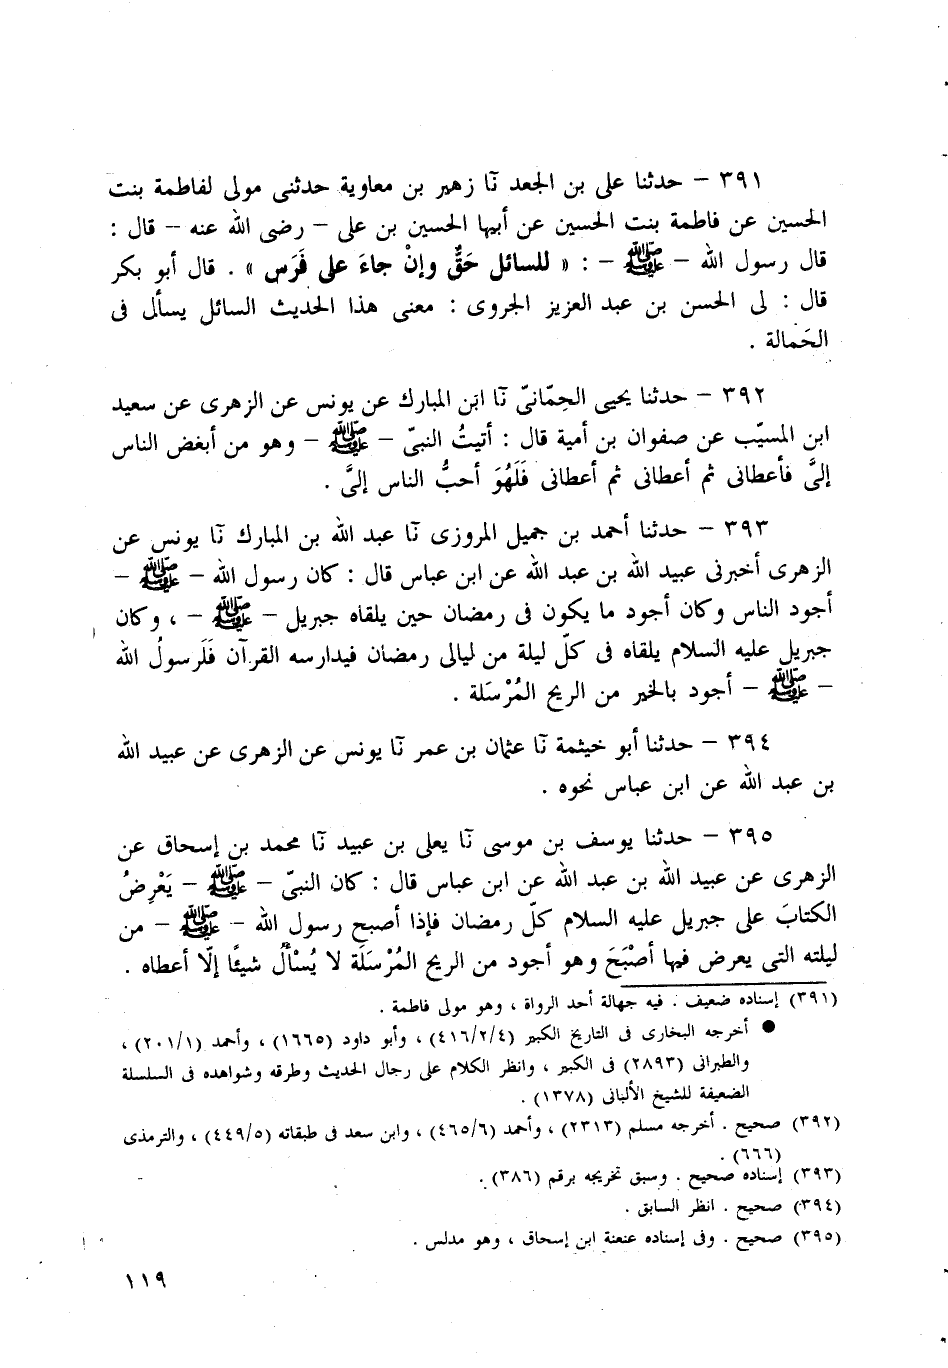 ٣٩١ – حدثنا على بن الجعد نَا زهير بن معاوية حدثنى مولى لفاطمة بنت
الحسين عن فاطمة بنت الحسين عن أبيها الحسين بن على – رضى الله عنه – قال :
قال رسول الله – ﷺ – : « للسائل حَقٌّ وإنْ جاءَ على فَرَس » . قال أبو بكر
قال : لى الحسن بن عبد العزيز الجروى : معنى هذا الحديث السائل يسأل فى
الحَمالة .
٣٩٢ – حدثنا يحيى الحِمّانىّ نَا ابن المبارك عن يونس عن الزهرى عن سعيد
ابن المسيّب عن صفوان بن أمية قال : أتيتُ النبىّ – ﷺ – وهو من أبغض الناس
إلىَّ فأعطانى ثم أعطانى ثم أعطانى فَلَهُوَ أحبُّ الناس إلىَّ .
٣٩٣ – حدثنا أحمد بن جميل المروزى نَا عبد الله بن المبارك نَا يونس عن
الزهرى أخبرنى عبيد الله بن عبد الله عن ابن عباس قال : كان رسول الله – ﷺ –
أجود الناس وكان أجود ما يكون فى رمضان حين يلقاه جبريل – ﷺ – ، وكان
جبريل عليه السلام يلقاه فى كلّ ليلة من ليالى رمضان فيدارسه القرآن فَلَرسولُ الله
– ﷺ – أجود بالخير من الريح المُرْسَلة .
٣٩٤ – حدثنا أبو خيثمة نَا عثمان بن عمر نَا يونس عن الزهرى عن عبيد الله
بن عبد الله عن ابن عباس نحوه .
٣٩٥ – حدثنا يوسف بن موسى نَا يعلى بن عبيد نَا محمد بن إسحاق عن
الزهرى عن عبيد الله بن عبد الله عن ابن عباس قال : كان النبىّ – ﷺ – يَعْرِضُ
الكتابَ على جبريل عليه السلام كلّ رمضان فإذا أصبح رسول الله – ﷺ – من
ليلته التى يعرض فيها أصْبَحَ وهو أجود من الريح المُرْسَلَة لا يُسْألُ شيئًا إلّا أعطاه .
(٣٩١) إسناده ضعيف . فيه جهالة أحد الرواة ، وهو مولى فاطمة .
● أخرجه البخارى فى التاريخ الكبير (٤١٦/٢/٤) ، وأبو داود (١٦٦٥) ، وأحمد (٢٠١/١) ،
والطبرانى (٢٨٩٣) فى الكبير ، وانظر الكلام على رجال الحديث وطرقه وشواهده فى السلسلة
الضعيفة للشيخ الألبانى (١٣٧٨) .
(٣٩٢) صحيح . أخرجه مسلم (٢٣١٣) ، وأحمد (٤٦٥/٦) ، وابن سعد فى طبقاته (٤٤٩/٥) ، والترمذى
(٦٦٦) .
(٣٩٣) إسناده صحيح . وسبق تخريجه برقم (٣٨٦) .
(٣٩٤) صحيح . انظر السابق .
(٣٩٥) صحيح . وفى إسناده عنعنة ابن إسحاق ، وهو مدلس .
١١٩